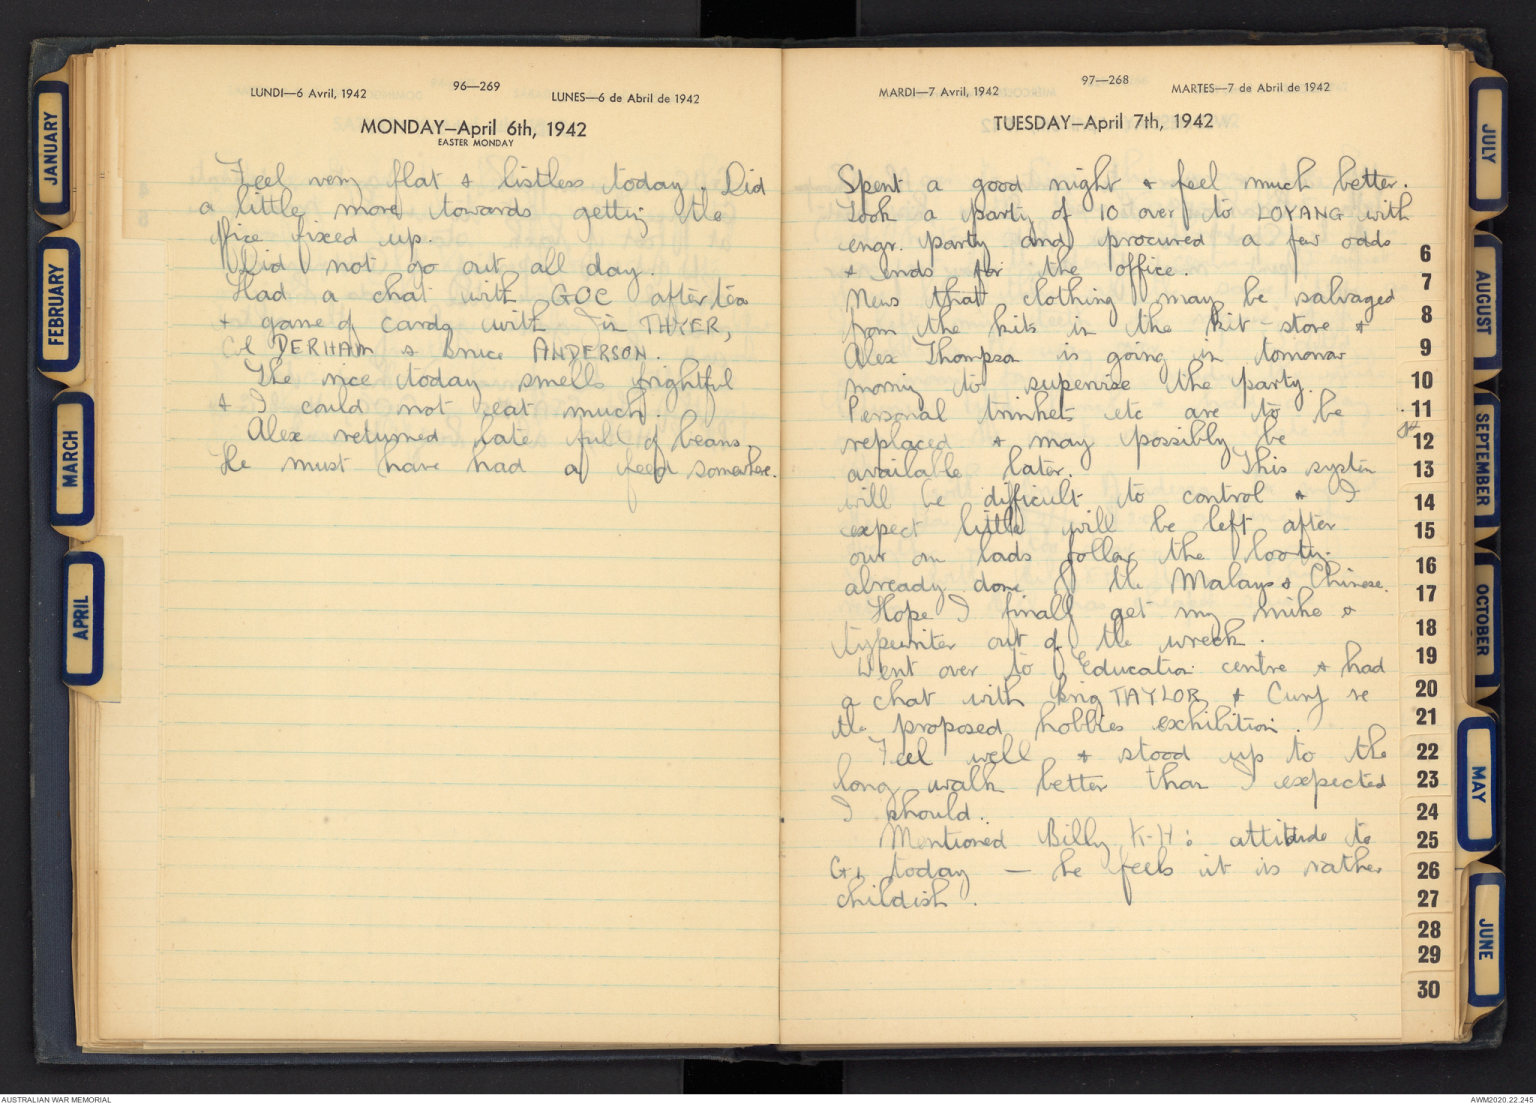 LUNDI—6 Avril, 1942
96—269
LUNES—6 de Abril de 1942
MONDAY—April 6th, 1942
EASTER MONDAY
Feel very flat & listless today. Did
a little more towards getting the
office fixed up.
Did not go out all day.
Had a chat with GOC after tea
& game of cards with Jim THYER,
Col DERHAM & Bruce ANDERSON.
The rice today smells frightful
& I could not eat much.
Alex returned late full of beans.
He must have had a feed somewhere.
MARDI—7 Avril, 1942
97—268
MARTES—7 de Abril de 1942
TUESDAY—April 7th, 1942
Spent a good night & feel much better.
Took a party of 10 over to LOYANG with
engr. party and procured a few odds
& ends for the office.
News that clothing may be salvaged
from the kits in the kit-store &
Alex Thompson is going in tomorrow
morning to supervise the party.
Personal trinkets etc are to be
replaced & may possibly be
available later. This system
will be difficult to control & I
expect little will be left after
our own lads follow the looting
already done by the Malays & Chinese.
Hope I finally get my mike &
typewriter out of the wreck.
Went over to Education centre & had
a chat with Brig TAYLOR & re
the proposed hobbies exhibition.
Feel well & stood up to the
long walk better than I expected
I should.
Mentioned Billy K-H: attitude to
today — he feels it is rather
childish.
JANUARY
FEBRUARY
MARCH
APRIL
JULY
AUGUST
SEPTEMBER
OCTOBER
MAY
JUNE
6
7
8
9
10
11
12
13
14
15
16
17
18
19
20
21
22
23
24
25
26
27
28
29
30
AUSTRALIAN WAR MEMORIAL
AWM2020.22.245